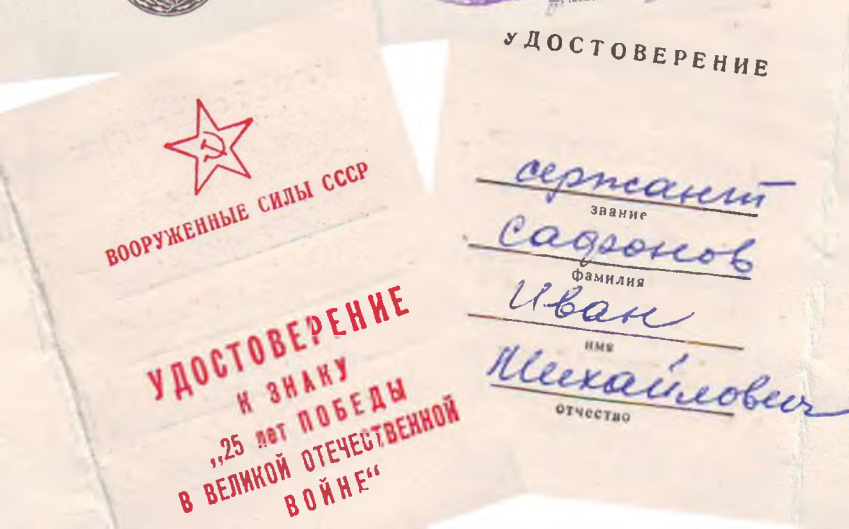 ВООРУЖЕННЫЕ СИЛЫ СССР
УДОСТОВЕРЕНИЕ
К ЗНАКУ
„25 лет ПОБЕДЫ
В ВЕЛИКОЙ ОТЕЧЕСТВЕННОЙ
ВОЙНЕ“
УДОСТОВЕРЕНИЕ
сержант
звание
Сафонов
фамилия
Иван
имя
Михайлович
отчество